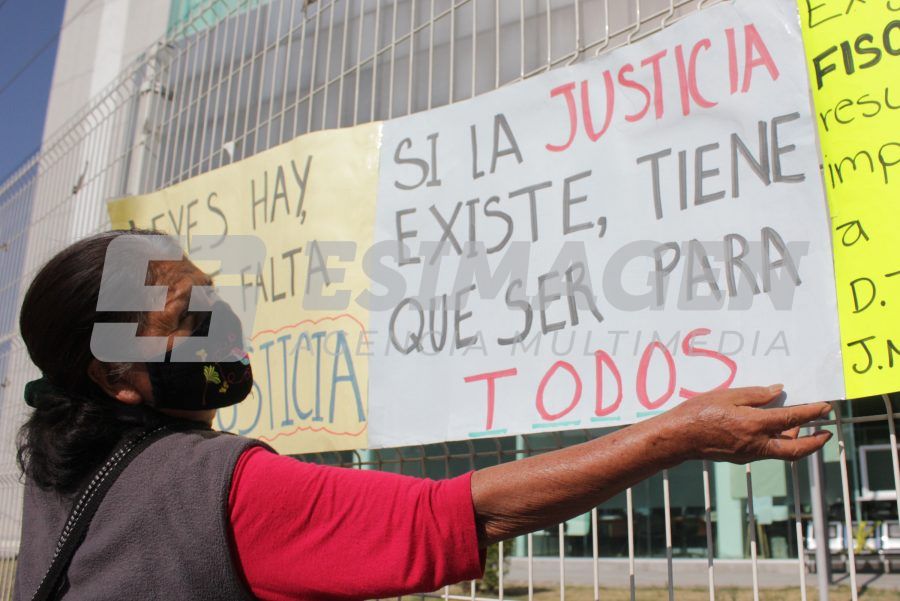 LEYES HAY,
FALTA
JUSTICIA
SI LA JUSTICIA
EXISTE, TIENE
QUE SER PARA
TODOS
FISC
resu
imp
a
D.
J.
ESIMAGEN
AGENCIA MULTIMEDIA